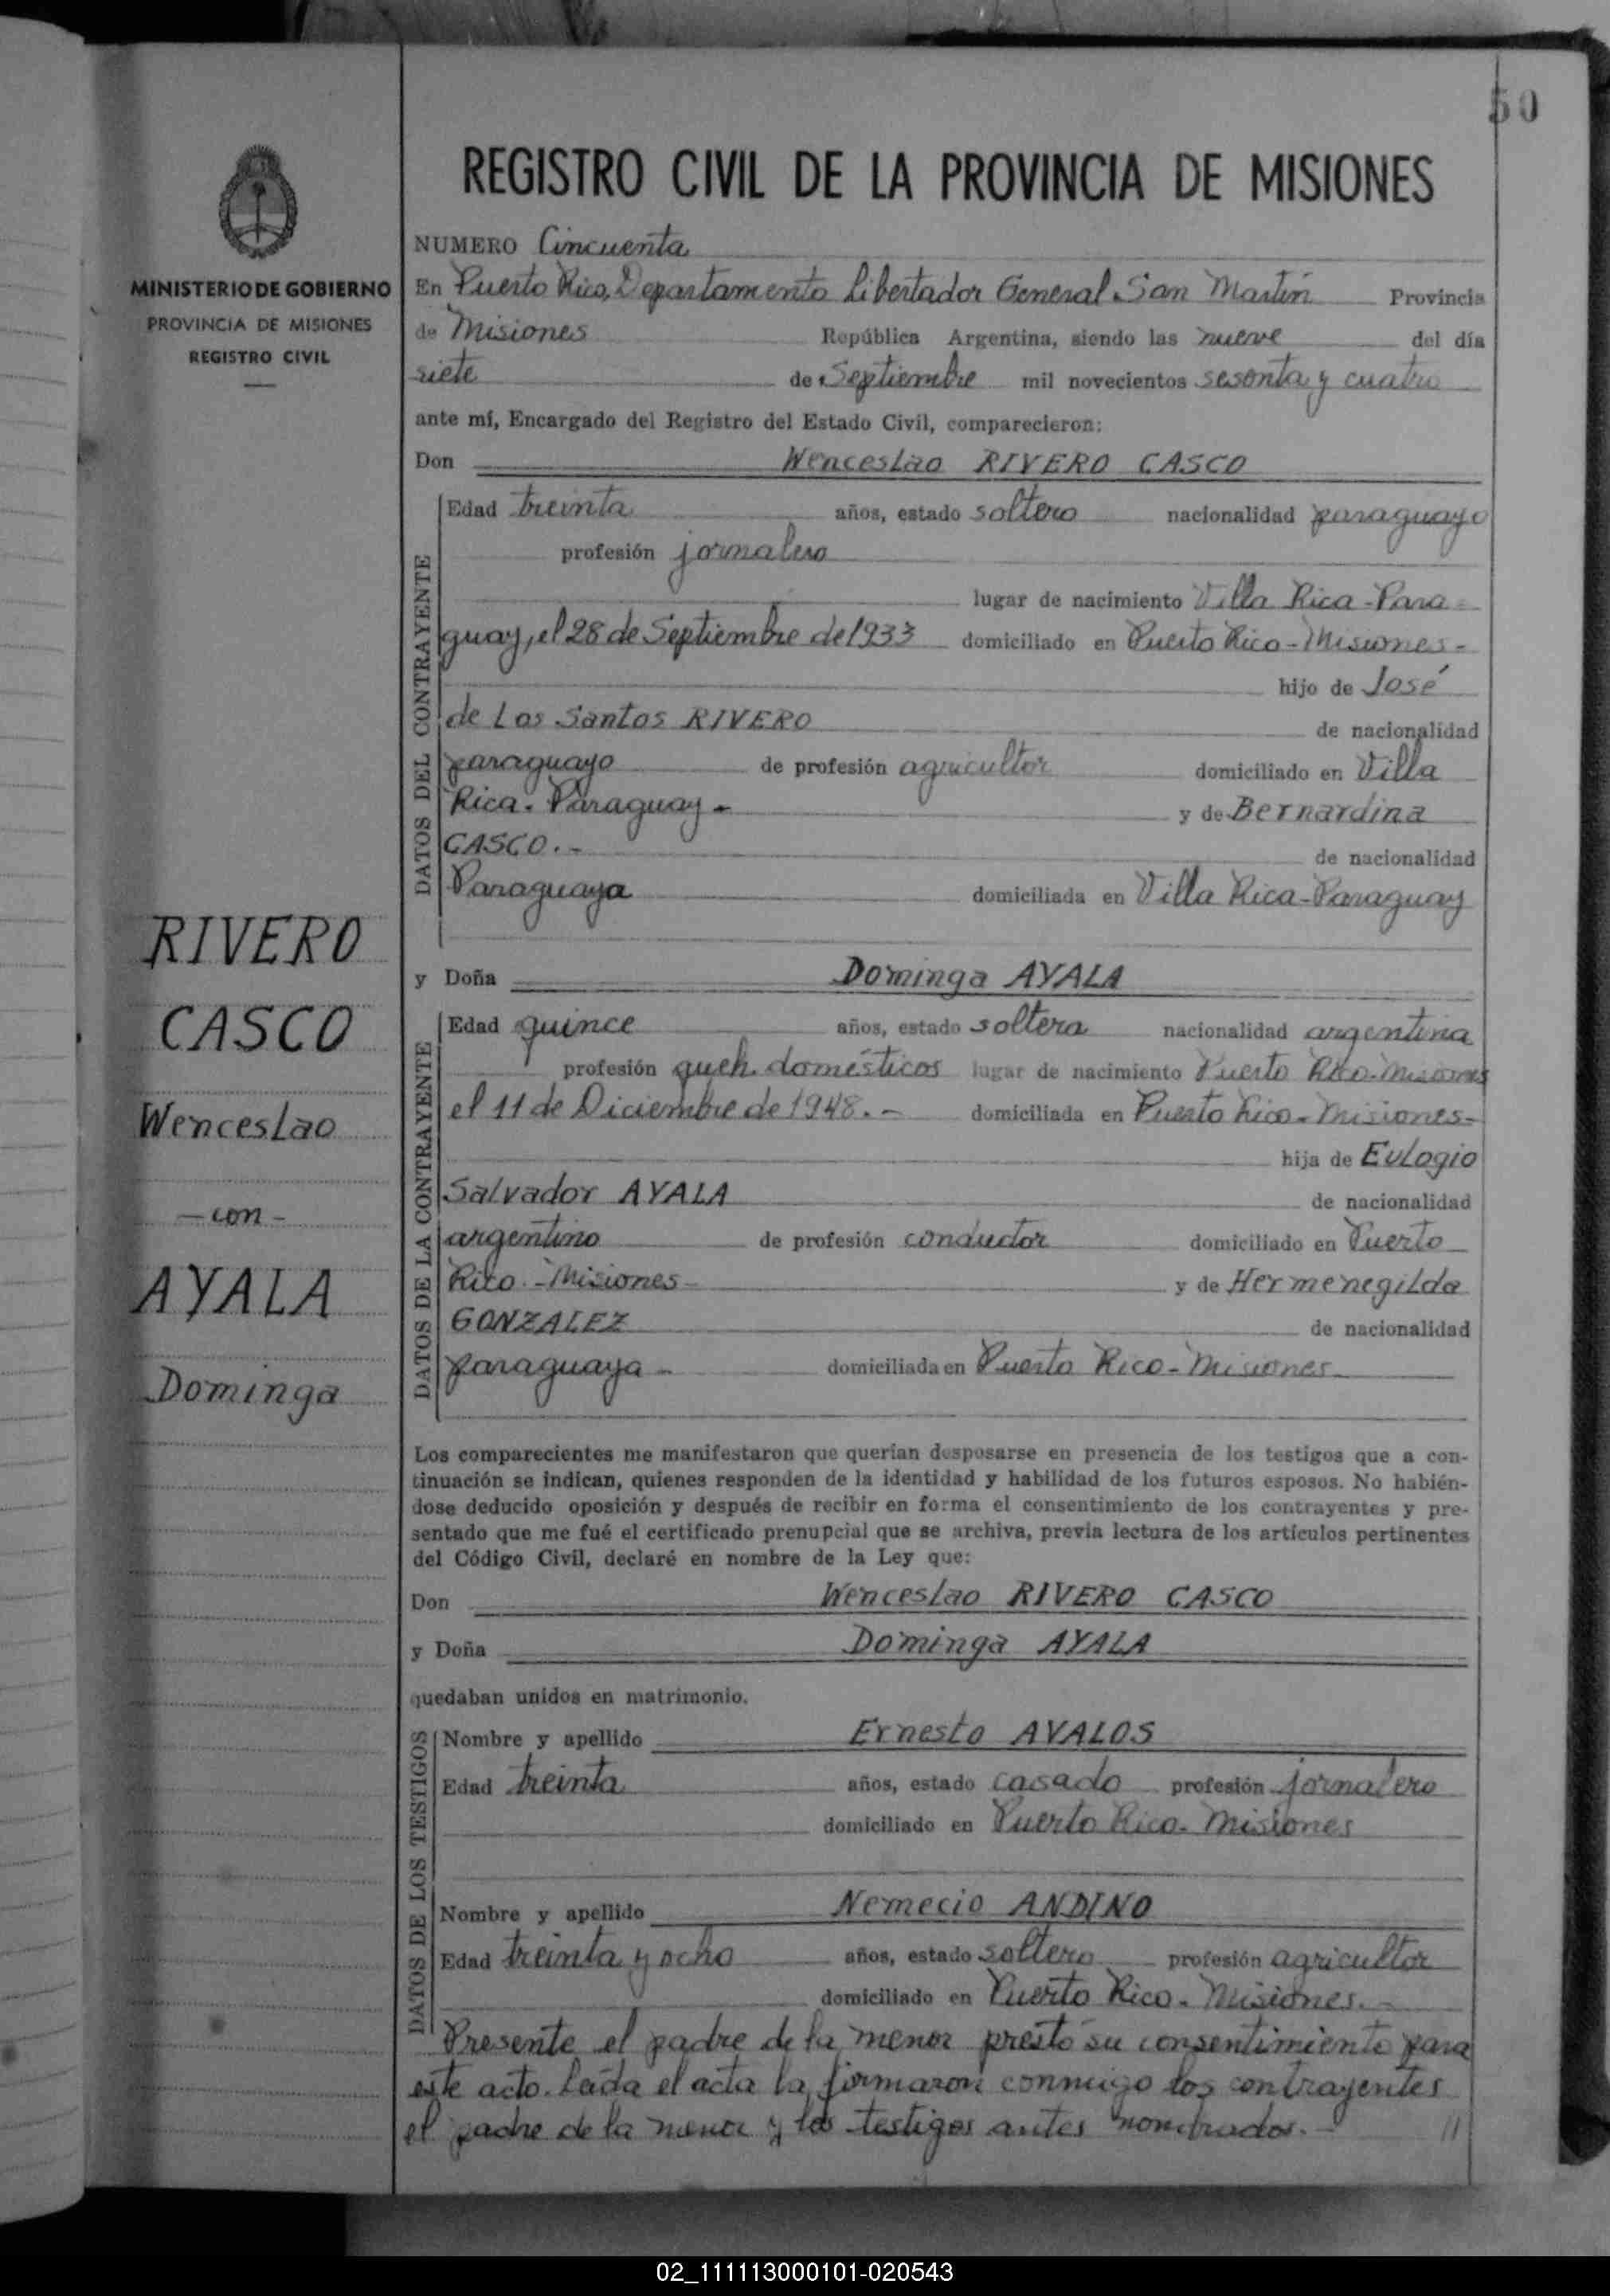 50
REGISTRO CIVIL DE LA PROVINCIA DE MISIONES
MINISTERIO DE GOBIERNO
PROVINCIA DE MISIONES
REGISTRO CIVIL
RIVERO
CASCO
Wenceslao
- con -
AYALA
Dominga
NUMERO Cincuenta
En Puerto Rico, Departamento Libertador General San Martín Provincia
de Misiones República Argentina, siendo las nueve del día
siete de Septiembre mil novecientos sesenta y cuatro
ante mí, Encargado del Registro del Estado Civil, comparecieron:
Don Wenceslao RIVERO CASCO
DATOS DEL CONTRAYENTE
Edad treinta años, estado soltero nacionalidad paraguayo
profesión jornalero
lugar de nacimiento Villa Rica - Para
guay, el 28 de Septiembre de 1933 domiciliado en Puerto Rico - Misiones -
hijo de José
de Los Santos RIVERO de nacionalidad
paraguayo de profesión agricultor domiciliado en Villa
Rica. Paraguay - y de Bernardina
CASCO. - de nacionalidad
Paraguaya domiciliada en Villa Rica - Paraguay
y Doña Dominga AYALA
DATOS DE LA CONTRAYENTE
Edad quince años, estado soltera nacionalidad argentina
profesión queh. domésticos lugar de nacimiento Puerto Rico - Misiones
el 11 de Diciembre de 1948. - domiciliada en Puerto Rico - Misiones -
hija de Eulogio
Salvador AYALA de nacionalidad
argentino de profesión conductor domiciliado en Puerto
Rico - Misiones y de Hermenegilda
GONZALEZ de nacionalidad
paraguaya - domiciliada en Puerto Rico - Misiones
Los comparecientes me manifestaron que querían desposarse en presencia de los testigos que a con-
tinuación se indican, quienes responden de la identidad y habilidad de los futuros esposos. No habién-
dose deducido oposición y después de recibir en forma el consentimiento de los contrayentes y pre-
sentado que me fué el certificado prenupcial que se archiva, previa lectura de los artículos pertinentes
del Código Civil, declaré en nombre de la Ley que:
Don Wenceslao RIVERO CASCO
y Doña Dominga AYALA
quedaban unidos en matrimonio.
DATOS DE LOS TESTIGOS
Nombre y apellido Ernesto AVALOS
Edad treinta años, estado casado profesión jornalero
domiciliado en Puerto Rico - Misiones
Nombre y apellido Nemecio ANDINO
Edad treinta y ocho años, estado soltero profesión agricultor
domiciliado en Puerto Rico - Misiones. -
Presente el padre de la menor prestó su consentimiento para
este acto. Leída el acta la firmaron conmigo los contrayentes
el padre de la menor y los testigos antes nombrados. - //
02_111113000101-020543